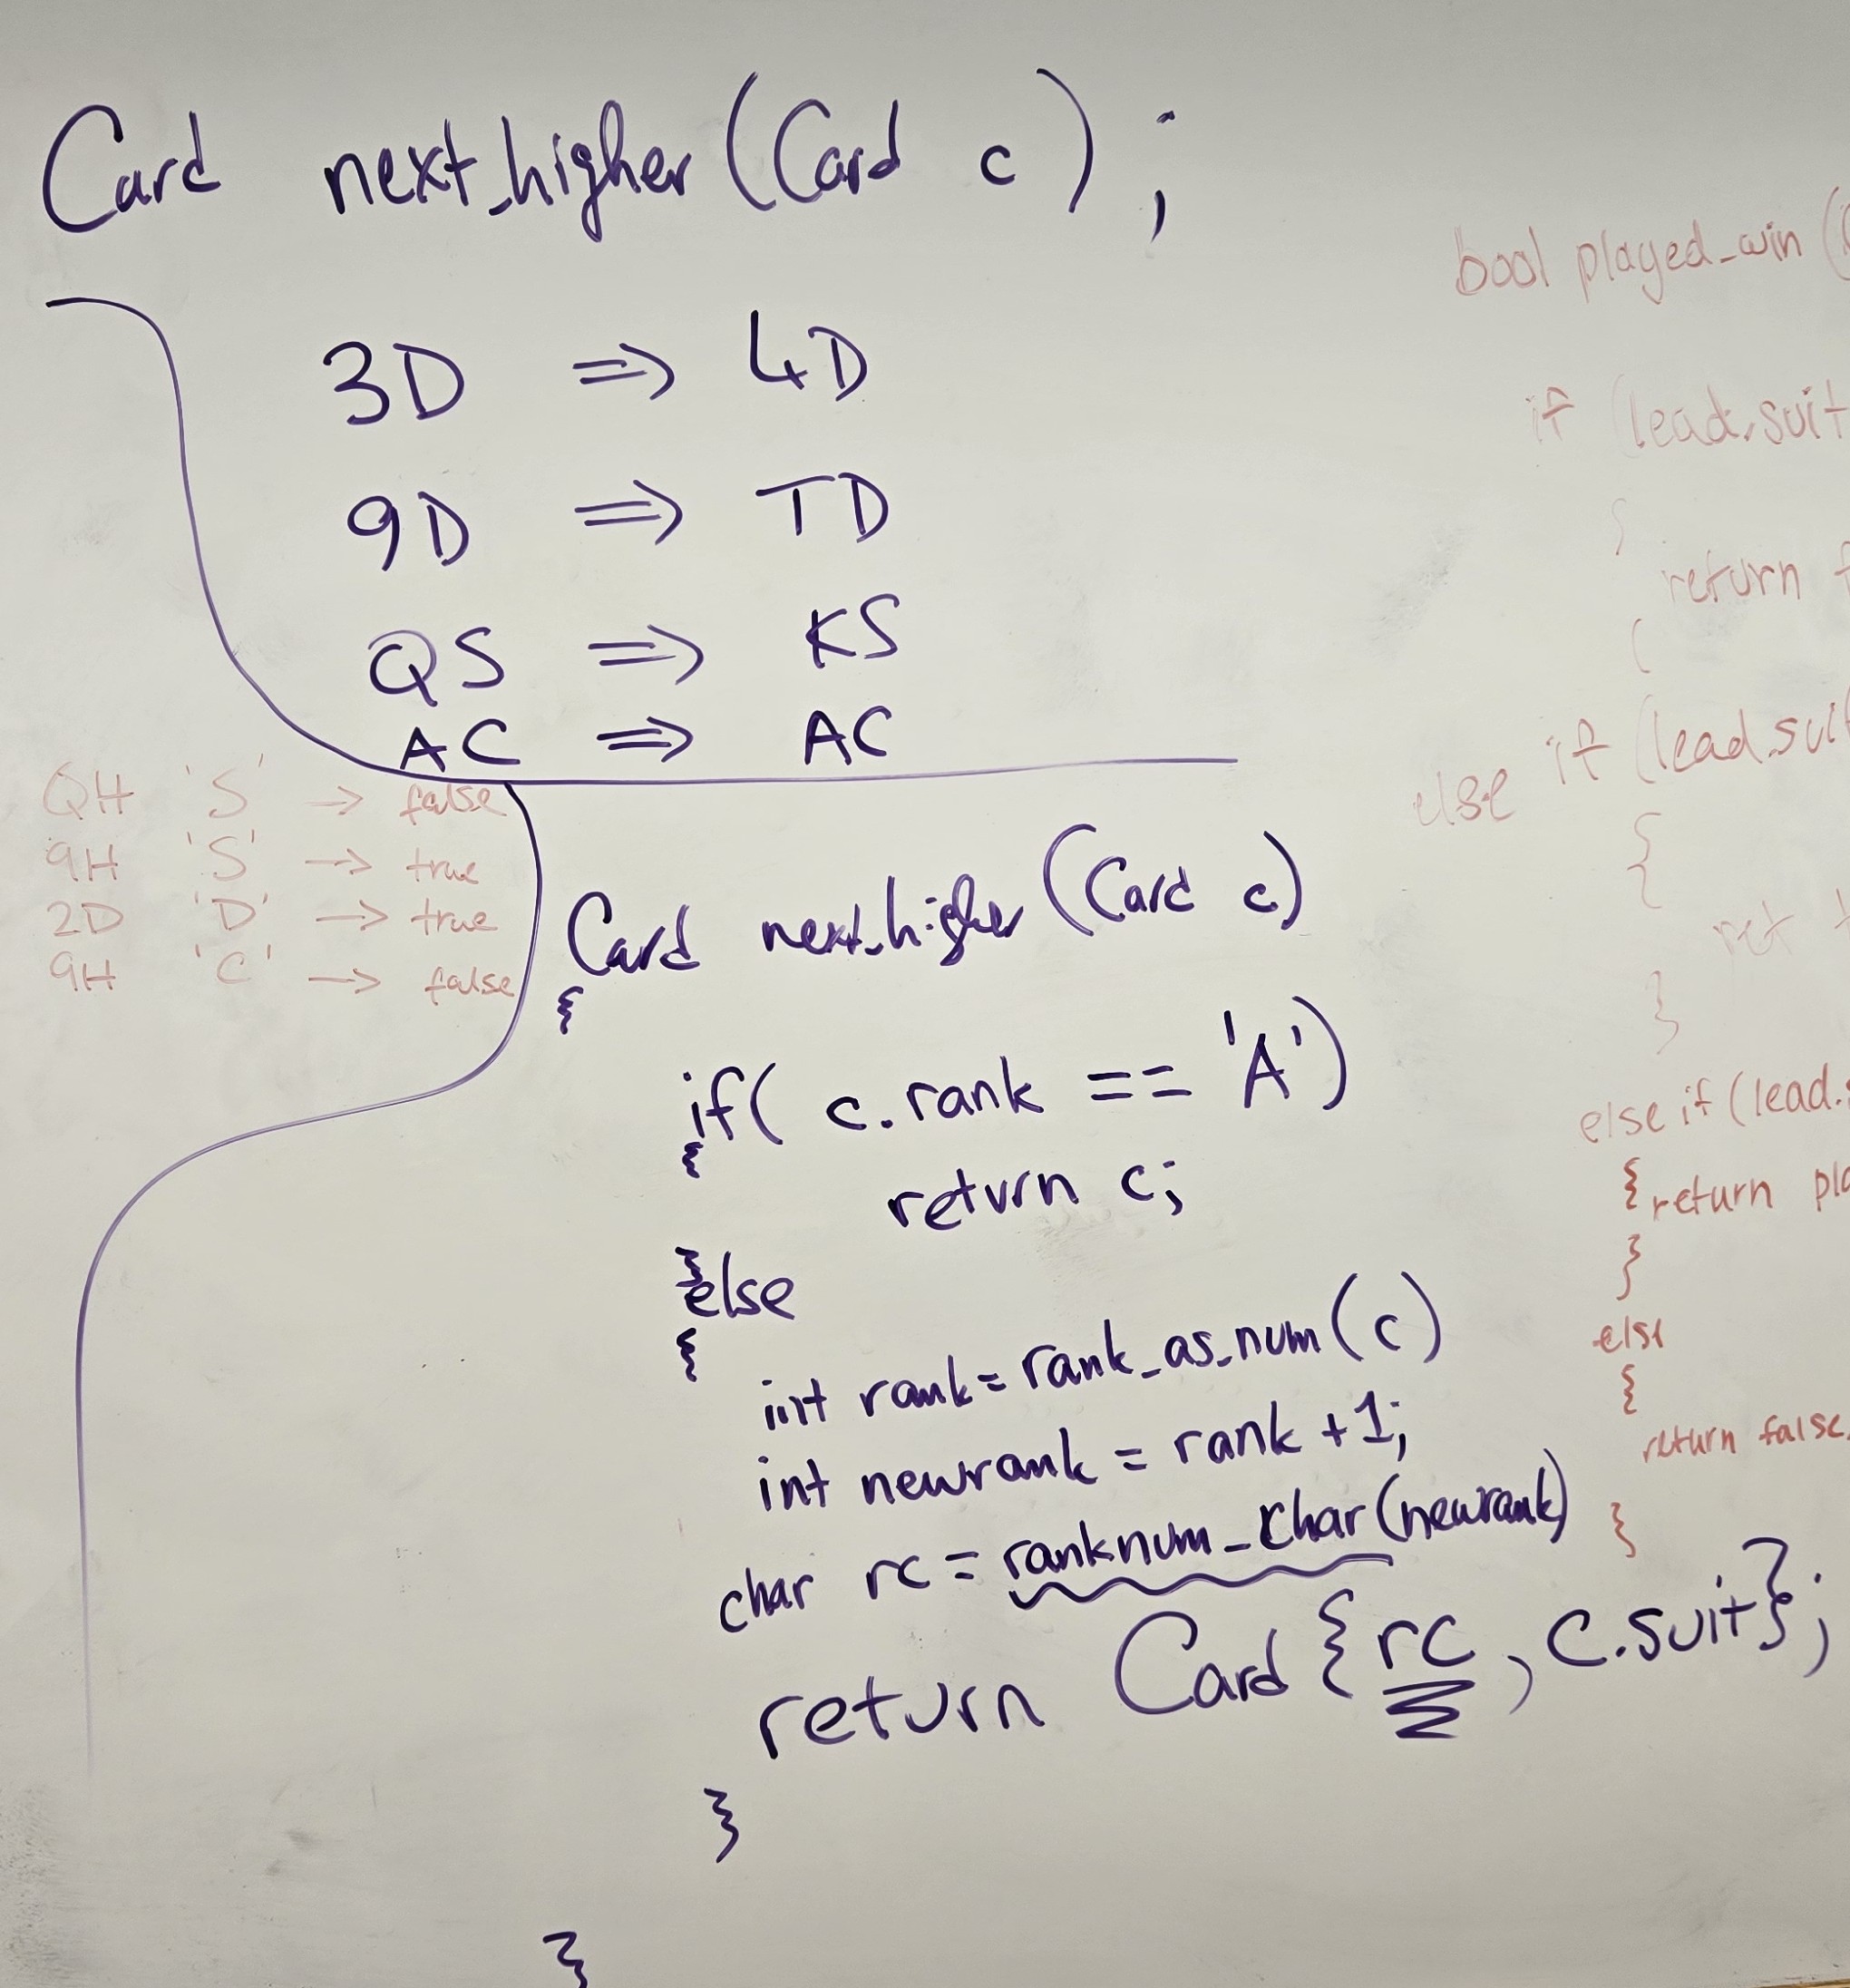 Card next_higher (Card c) ;
3D => 4D
9D => TD
QS => KS
AC => AC
QH 'S' -> false
9H 'S' -> true
2D 'D' -> true
9H 'C' -> false
Card next_higher (Card c)
{
if( c.rank == 'A')
{
return c;
}else
{
int rank = rank_as_num(c)
int newrank = rank +1;
char rc = ranknum_char(newrank)
return Card {rc, c.suit};
}
}
bool played_win (
if (lead.suit
{
return f
}
else if (lead.suit
{
ret t
}
else if (lead.
{ return pla
}
else
{
return false
}